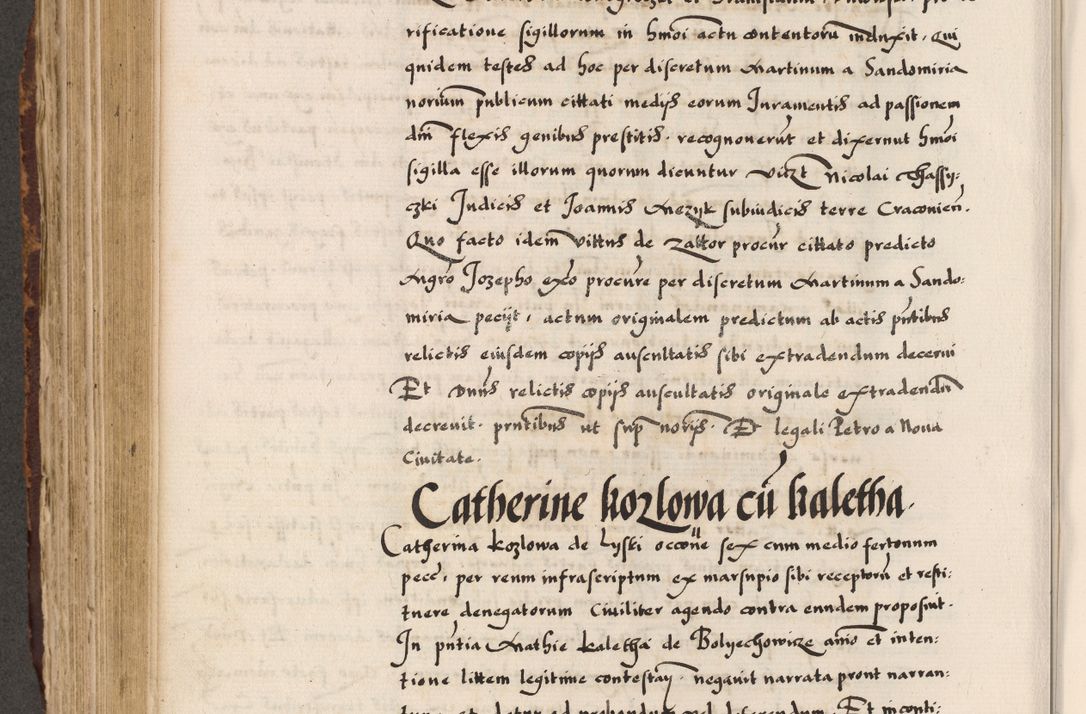 rificatione sigillorum in hmoi actu contentoru induxit. Qui
quidem testes ad hoc per discretum Martinum a Sandomiria
norium publicum cittati medijs eorum Juramentis ad passionem
dni flexis genibus prestitis. recognoverut et dixerunt hmoi
sigilla esse illorum quorum dicuntur vidzt Nicolai Thassy:
czki Judicis et Joannis Mezyk subiudicis terre Craconien.
Quo facto idem vittus de Zattor procur cittato predicto
Mgro Jozepho exco procure per discretum Martinum a Sando:
miria pecijt, actum originalem predictum ab actis pntibus
relictis eiusdem copijs auscultatis sibi extradendum decerni
Et Dnus relictis copijs auscultatis originale extradendu
decrevit. prntibus ut sup norijs. Et legali Petro a Nova
Civitate.
Catherine kozlowa cu kaletha.
Catherina kozlowa de Lyski occone sex cum medio fertonum
pecc, per reum infrascriptum ex marsupio sibi receptoru et resti:
tuere denegatorum Civiliter agendo contra eundem proposuit.
In pntia Mathie kaletha de Bolyechowicze animo et inten:
tione littem legitime contestan. negavit narrata pront narran: